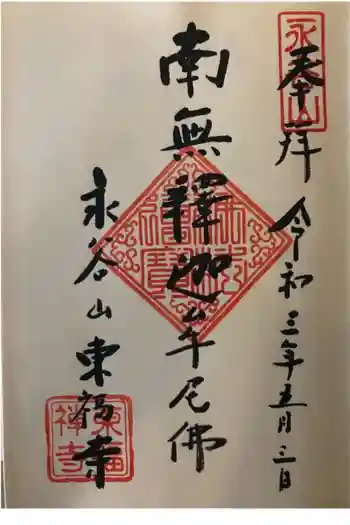 奉拝
令和三年五月三日
南無釋迦牟尼佛
永谷山東福寺
永谷山
佛法僧寶
東福禅寺